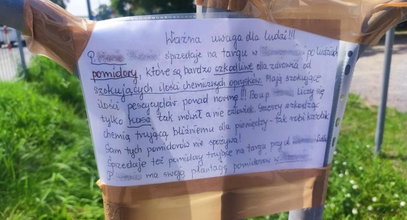 Ważna uwaga dla ludzi!!!
sprzedaje na targu w po ludziach
pomidory, które są bardzo szkodliwe dla zdrowia od
szokujących ilości chemicznych oprysków. Mają szokujące
ilości pestycydów ponad normę!!! Bo u p. liczy się
tylko kasa tak mówił a nie człowiek
chemią trującą bliźniemu dla pieniędzy - tak robi
Sam tych pomidorów nie spożywa!
Sprzedaje też pomidory trujące na targu przy ul.
P. ma swoją plantację pomidorów w